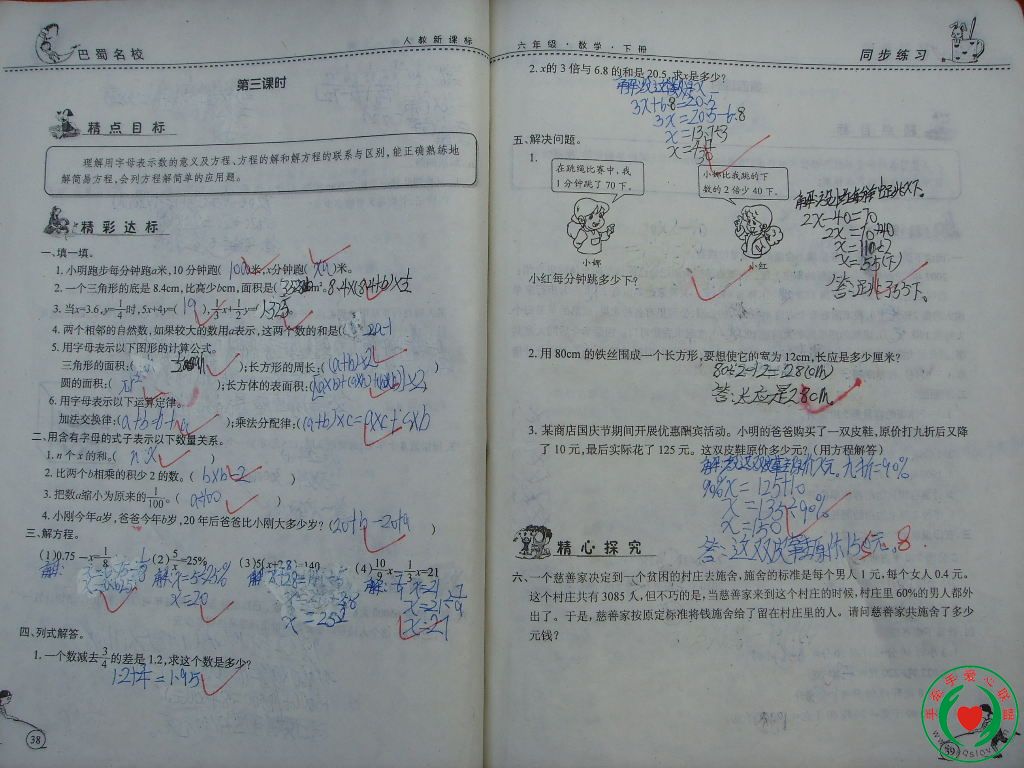 巴蜀名校
人教新课标
第三课时
精点目标
理解用字母表示数的意义及方程、方程的解和解方程的联系与区别,能正确熟练地
解简易方程,会列方程解简单的应用题。
精彩达标
一、填一填。
1. 小明跑步每分钟跑a米,10分钟跑( 10a )米,x分钟跑( xa )米。
2. 一个三角形的底是8.4cm,比高少bcm,面积是( )cm²。8.4×(8.4+b)×½
3. 当x=3.6,y=1/4时,5x+4y=( 19 ),1/3x+1/2y=( 1.325 )。
4. 两个相邻的自然数,如果较大的数用a表示,这两个数的和是( 2a-1
5. 用字母表示以下图形的计算公式。
三角形的面积:( );长方形的周长:( (a+b)×2 )
圆的面积:( πr² );长方体的表面积:( ×2
6. 用字母表示以下运算定律。
加法交换律:( a+b=b+a );乘法分配律:( (a+b)×c=a×c+c×b
二、用含有字母的式子表示以下数量关系。
1. n个x的和。( n x )
2. 比两个b相乘的积少2的数。( b×b-2 )
3. 把数a缩小为原来的1/100。( a÷100 )
4. 小刚今年a岁,爸爸今年b岁,20年后爸爸比小刚大多少岁?( 20+b-20+a )
三、解方程。
(1)0.75-x=1/8 (2)5/x=25% (3)5(x+2.8)=140 (4)9/10x-1/3x=21
解: x=5÷25% 解:
x=0.625 x=20 x=21÷
x=25.2 x=21
四、列式解答。
1. 一个数减去3/4的差是1.2,求这个数是多少?
=1.95
38
六年级·数学·下册
同步练习
2. x的3倍与6.8的和是20.5,求x是多少?
解:设这数为x
3x+6.8=20.5
3x=20.5-6.8
x=13.7÷3
x=
五、解决问题。
1.
在跳绳比赛中,我
1分钟跳了70下。
小娜比我跳的下
数的2倍少40下。
解:设小红每分钟跳x下。
2x-40=70
2x=70+40
x=110÷2
x=55(下)
答:小红跳55下。
小娜
小红
小红每分钟跳多少下?
2. 用80cm的铁丝围成一个长方形,要想使它的宽为12cm,长应是多少厘米?
80÷2-12=28(cm)
答:长应是28cm。
3. 某商店国庆节期间开展优惠酬宾活动。小明的爸爸购买了一双皮鞋,原价打九折后又降
了10元,最后实际花了125元。这双皮鞋原价多少元?(用方程解答)
解:设这双皮鞋原价x元。九折=90%
90%x=125+10
x=135÷90%
x=150
答:这双皮鞋原价150元。
精心探究
六、一个慈善家决定到一个贫困的村庄去施舍,施舍的标准是每个男人1元,每个女人0.4元。
这个村庄共有3085人,但不巧的是,当慈善家来到这个村庄的时候,村庄里60%的男人都外
出了。于是,慈善家按原定标准将钱施舍给了留在村庄里的人。请问慈善家共施舍了多少
元钱?
39
手牵手爱心联盟